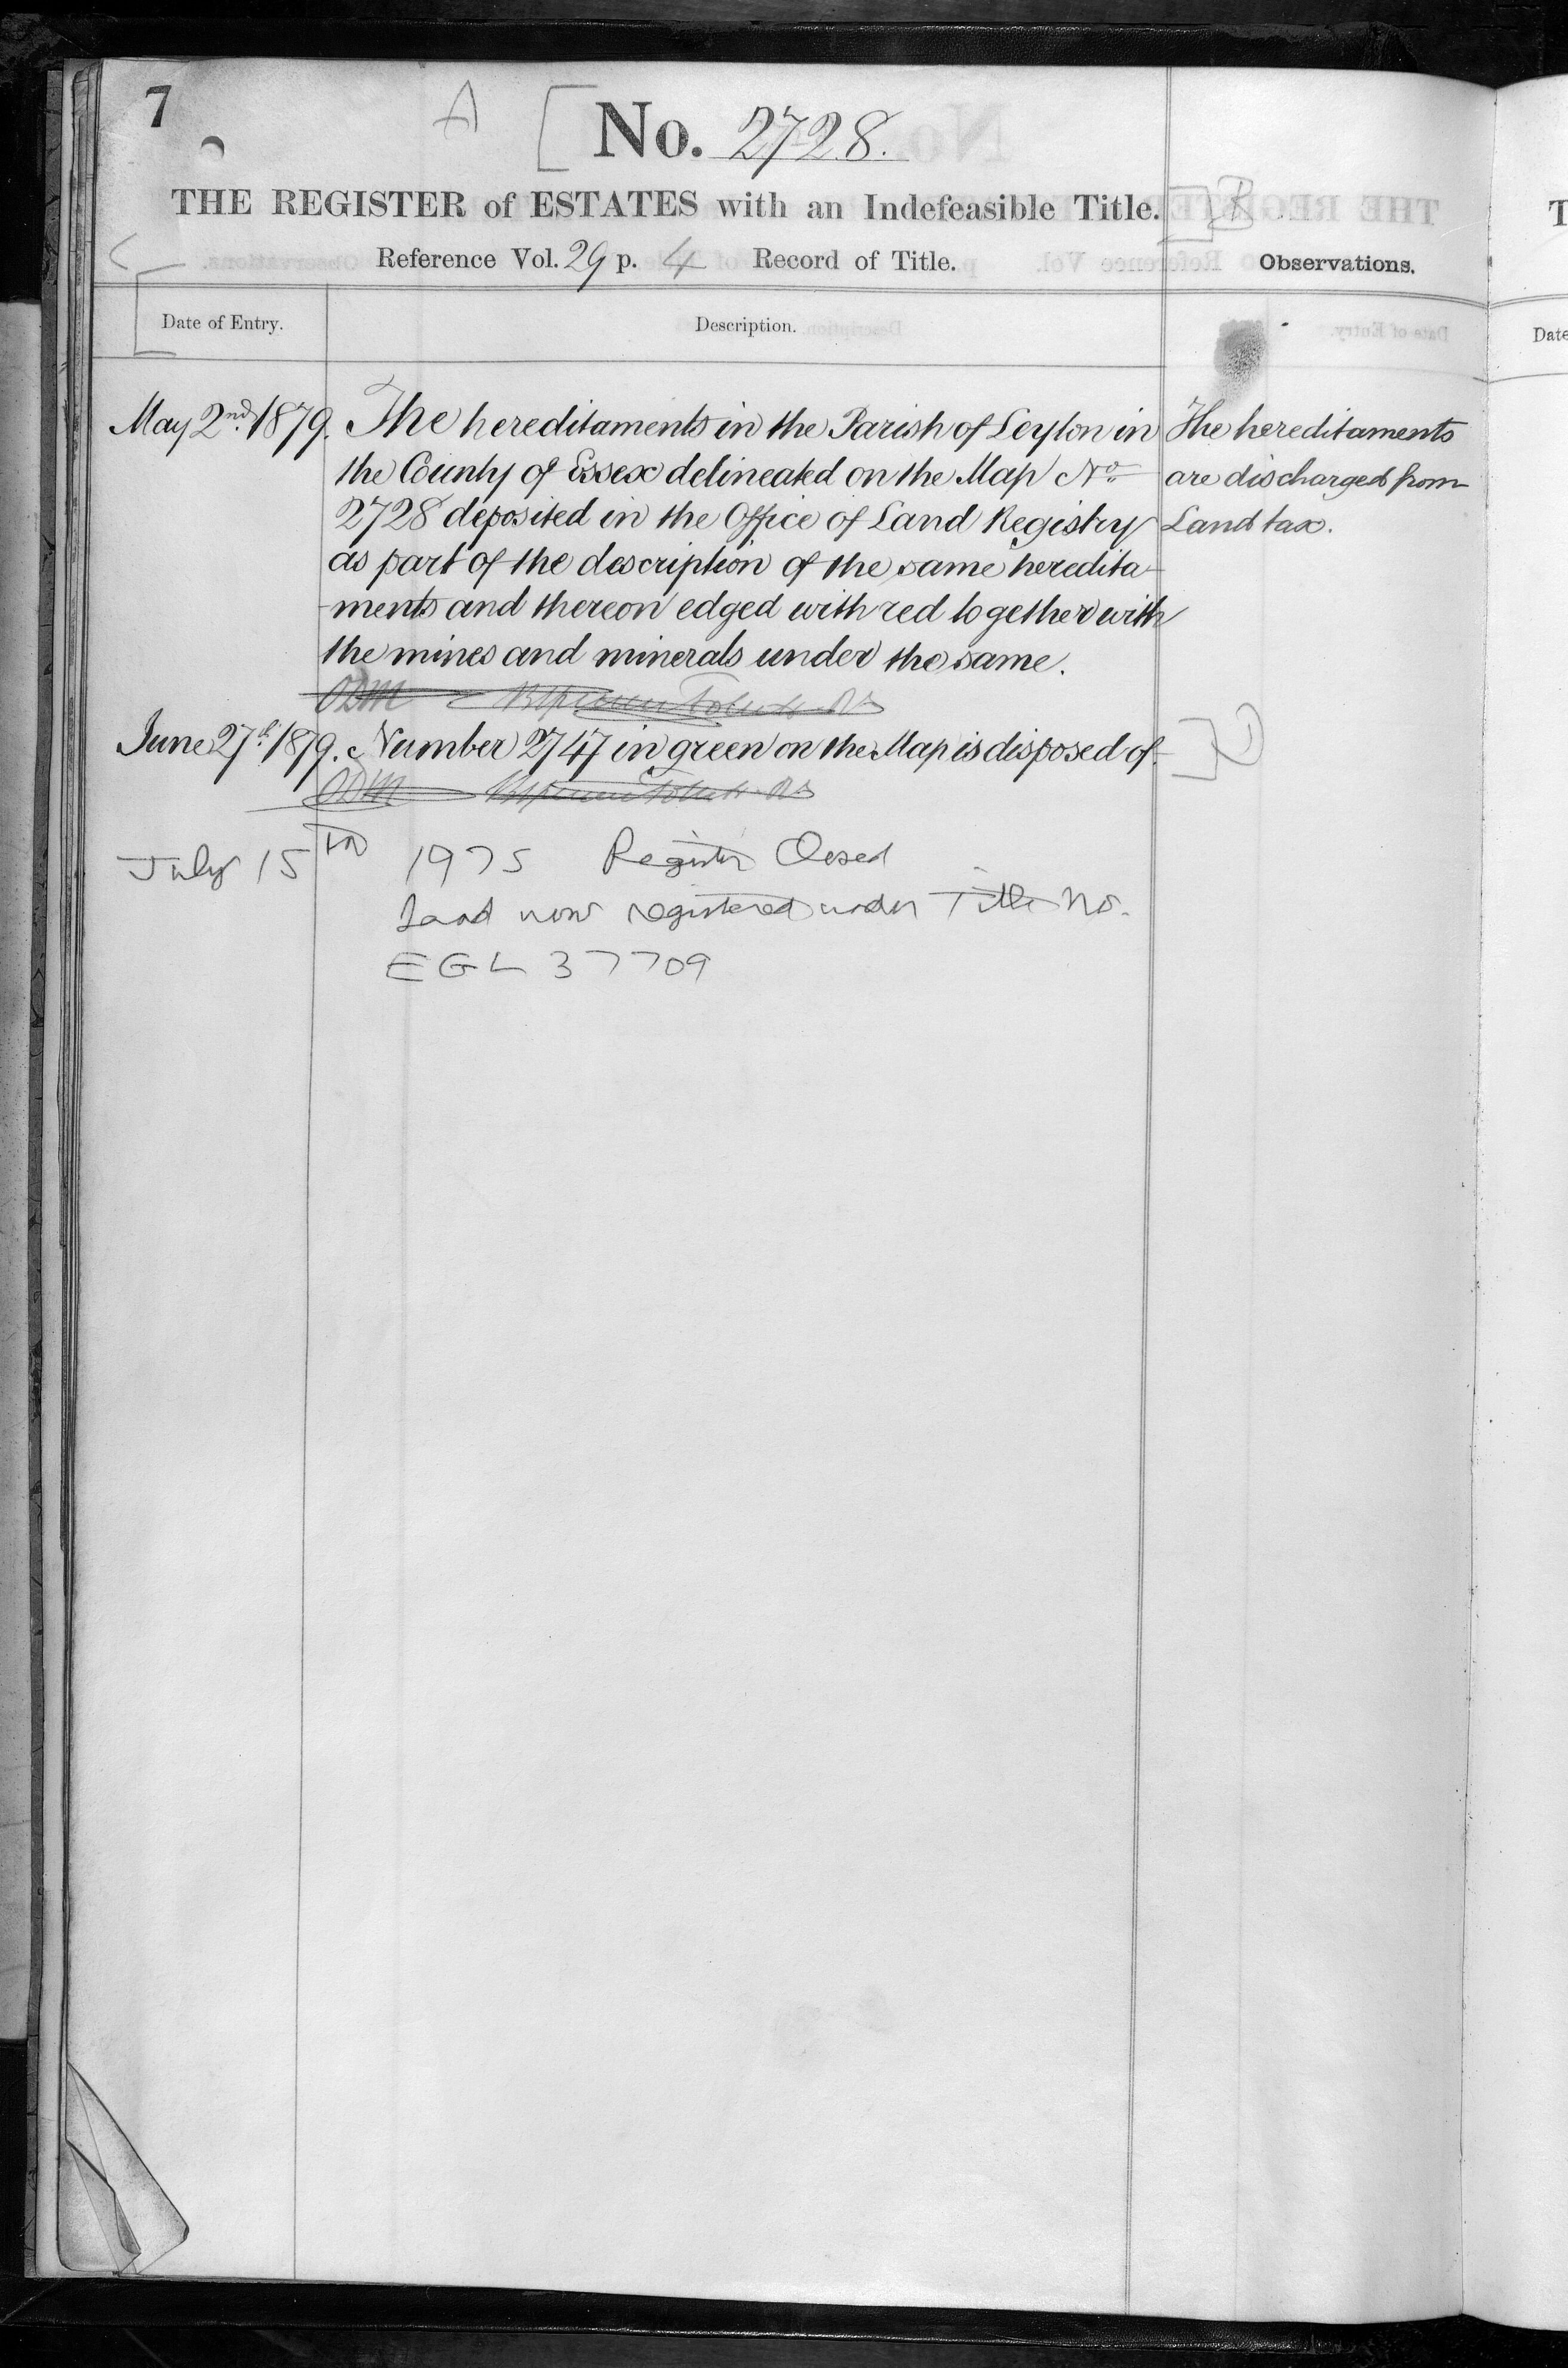 7
A [ No. 2728.
THE REGISTER of ESTATES with an Indefeasible Title.
Reference Vol. 29 p. 4 Record of Title.
Observations.
Date of Entry.
Description.
May 2nd 1879. The hereditaments in the Parish of Leyton in
the County of Essex delineated on the Map No
2728 deposited in the Office of Land Registry
as part of the description of the same heredita-
-ments and thereon edged with red together with
the mines and minerals under the same.
The hereditaments
are discharged from
Land tax.
June 27th 1879. Number 2747 in green on the Map is disposed of.
July 15th 1975 Register Closed
Land now registered under Title No.
EGL 37709
T
Date